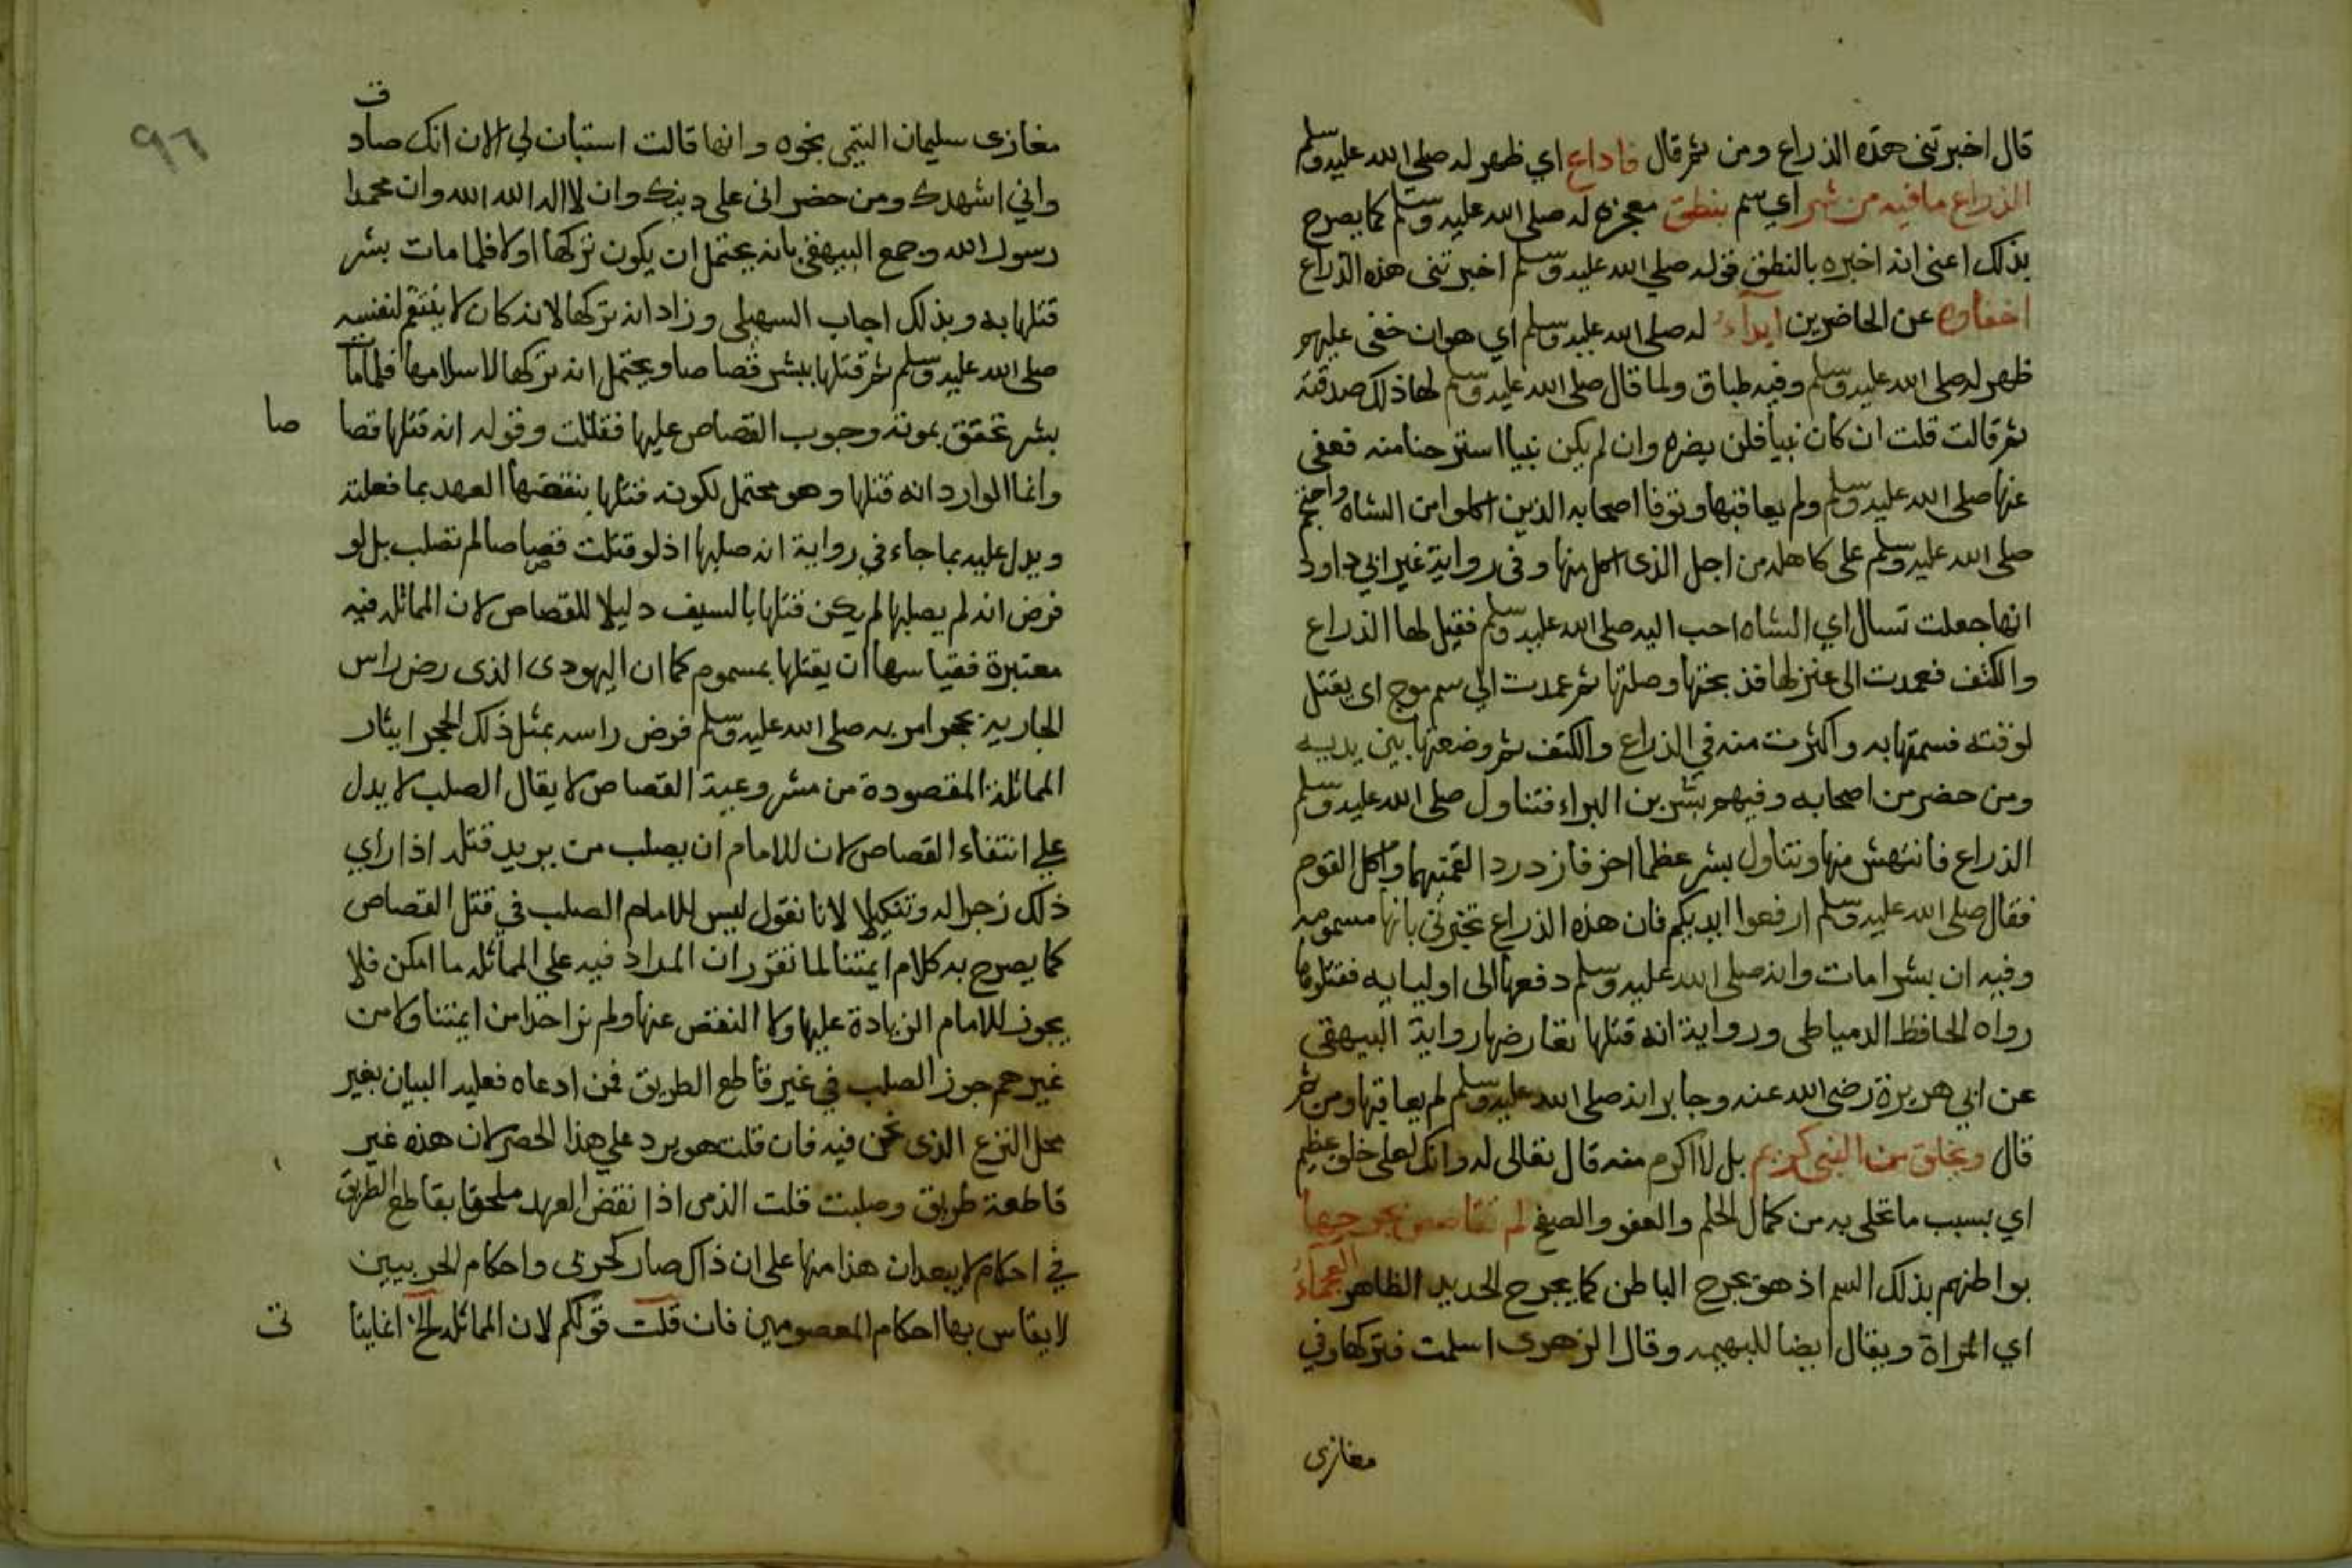 قال اخبرتني هذه الذراع ومن ثم قال فاذاع اي ظهر له صلى الله عليه وسلم
الذراع مافيه من شر اي سم بنطق معجزه له صلى الله عليه وسلم كما يصرح
بذلك اعني انه اخبره بالنطق قوله صلي الله عليه وسلم اخبرتني هذه الذراع
اخفاوه عن الحاضرين ابداء له صلى الله عليه وسلم اي هوان خفى عليهم
ظهر له صلى الله عليه وسلم وفيه طباق ولما قال صلى الله عليه وسلم لها ذلك صدقته
ثم قالت قلت ان كان نبيا فلن يضره وان لم يكن نبيا استرحنا منه فعفى
عنها صلى الله عليه وسلم ولم يعاقبها وتوفا اصحابه الذين اكلوا من الشاه واحتجم
صلى الله عليه وسلم على كاهله من اجل الذى اكل منها وفى رواية غير ابي داود
انها جعلت تسال اي الشاه احب اليه صلى الله عليه وسلم فقيل لها الذراع
والكتف فعمدت الى عنز لها فذبحتها وصلتها ثم عمدت الي سم موح اى يقتل
لوقته فسمتها به واكثرت منه في الذراع والكتف ثم وضعتها بين يديه
ومن حضر من اصحابه وفيهم بشر بن البراء فتناول صلى الله عليه وسلم
الذراع فانتهش منها وتناول بشر عظما اخر فازدردا لقمتيهما واكل القوم
فقال صلى الله عليه وسلم ارفعوا ايديكم فان هذه الذراع تخبرني بانها مسمومه
وفيه ان بشرا مات وانه صلى الله عليه وسلم دفعها الى اوليايه فقتلوها
رواه الحافظ الدمياطى ورواية انه قتلها تعارضها رواية البيهقى
عن ابي هريرة رضي الله عنه وجابر انه صلى الله عليه وسلم لم يعاقبها ومن ثم
قال وبخلق من النبي كريم بل لا اكرم منه قال تعالى له وانك لعلى خلق عظيم
اي بسبب ما تحلى به من كمال الحلم والعفو والصفح لم تقاصص بجرحها
بواطنهم بذلك السم اذ هو يجرح الباطن كما يجرح الحديد الظاهر العجماء
اي المراة ويقال ايضا للبهيمه وقال الزهرى اسلمت فتركها وفي
مغازى
٩٦
مغازى سليمان التيمى نحوه وانها قالت استبان لي الان انك صادق
واني اشهدك ومن حضر انى على دينك وان لا اله الا الله وان محمدا
رسول الله وجمع البيهقي بانه يحتمل ان يكون تركها اولا فلما مات بشر
قتلها به وبذلك اجاب السهيلى وزاد انه تركها لانه كان لا ينتقم لنفسه
صلى الله عليه وسلم ثم قتلها ببشر قصاصا ويحتمل انه تركها لاسلامها فلما مات
بشر تحقق بموته وجوب القصاص عليها فقتلت وقوله انه قتلها قصا صا
وانما الوارد انه قتلها وهو محتمل لكونه قتلها بنقضها العهد بما فعلته
ويدل عليه بما جاء في رواية انه صلبها اذ لو قتلت قصاصا لم تصلب بل لو
فرض انه لم يصلبها لم يكن قتلها بالسيف دليلا للقصاص لان المماثله فيه
معتبرة فقياسها ان يقتلها بمسموم كما ان اليهودى الذى رض راس
الجارية بحجر امر به صلى الله عليه وسلم فرض راسه بمثل ذلك الحجر ايثار
المماثلة المقصودة من مشروعية القصاص لا يقال الصلب لا يدل
على انتفاء القصاص لان للامام ان يصلب من يريد قتله اذا راي
ذلك زجرا له وتنكيلا لانا نقول ليس للامام الصلب في قتل القصاص
كما يصرح به كلام ايمتنا لما تقرر ان المداد فيه على المماثله ما امكن فلا
يجوز للامام الزيادة عليها ولا النقص عنها ولم نر احدا من ايمتنا ولا من
غيرهم جوز الصلب في غير قاطع الطريق فمن ادعاه فعليه البيان بغير
محل النزع الذى نحن فيه فان قلت هو يرد على هذا الحصر لان هذه غير
قاطعة طريق وصلبت قلت الذمى اذا نقض العهد ملحقا بقاطع الطريق
في احكام لا يبعد ان هذا منها على ان ذاك صار كحربى واحكام الحربيين
لا يقاس بها احكام المعصومين فان قلت قولكم لان المماثله الخ اغايتا تى